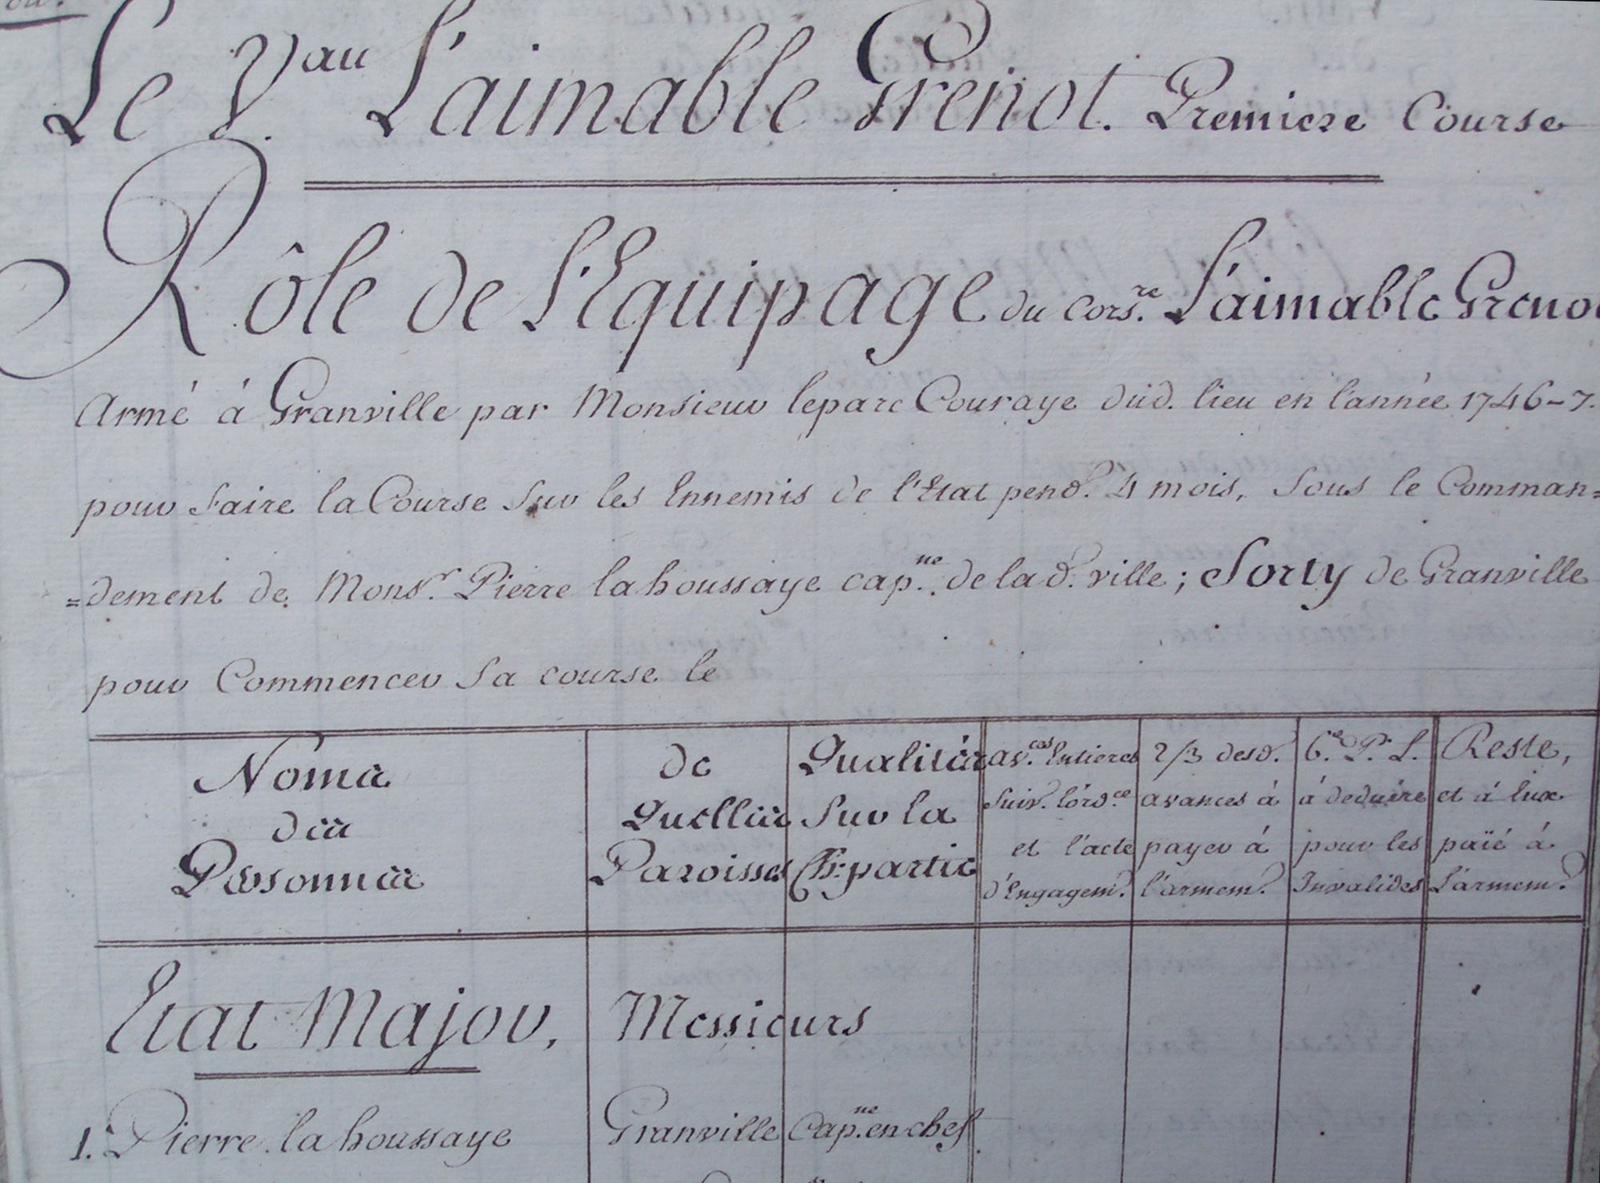 Le V.au L'aimable Grenot. Premiere Course
Rôle de L'Equipage du Cors.re L'aimable Grenot
Armé à Granville par Monsieur leparc Couraye dud. lieu en l'année 1746-7.
pour faire la Course Sur les Ennemis de l'Etat pend.t 4 mois, Sous le Comman=
=dement de Mons.r Pierre lahoussaye cap.ne de lad. ville; Sorty de Granville
pour Commencer Sa course le
Noms
des
Personnes
de
Quelles
Paroisses
Qualités
Sur la
Ch: partie
av.ces Entieres
Suiv. l'ord.ce
et l'acte
d'Engagem.t
2/3 desd.
avances à
payer à
l'armem.t
6.d. P. L.
à deduire
pour les
Invalides
Reste,
et à Eux
païé à
L'armem.t
Etat Major, Messieurs
1. Pierre lahoussaye Granville Cap.ne en chef